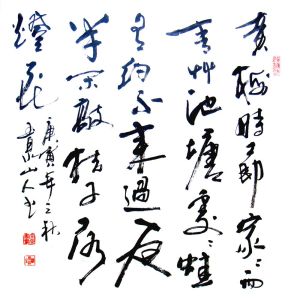 黄梅時節家〻雨
青艸池塘處〻蛙
有約不來過夜
半閑敲棋子落
燈花
庚寅年之秋
山人书